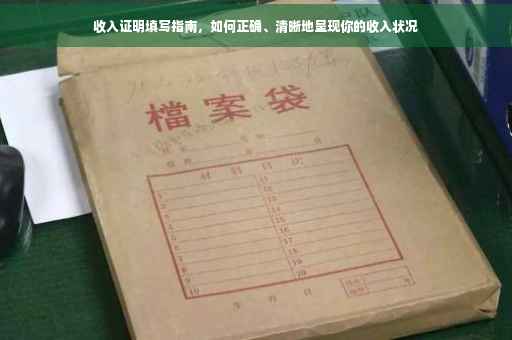 收入证明填写指南，如何正确、清晰地呈现你的收入状况
檔案袋
材料目次
1 11
2 12
3 13
4 14
5 15
6 16
7 17
8 18
9 19
10 20
年 月 日